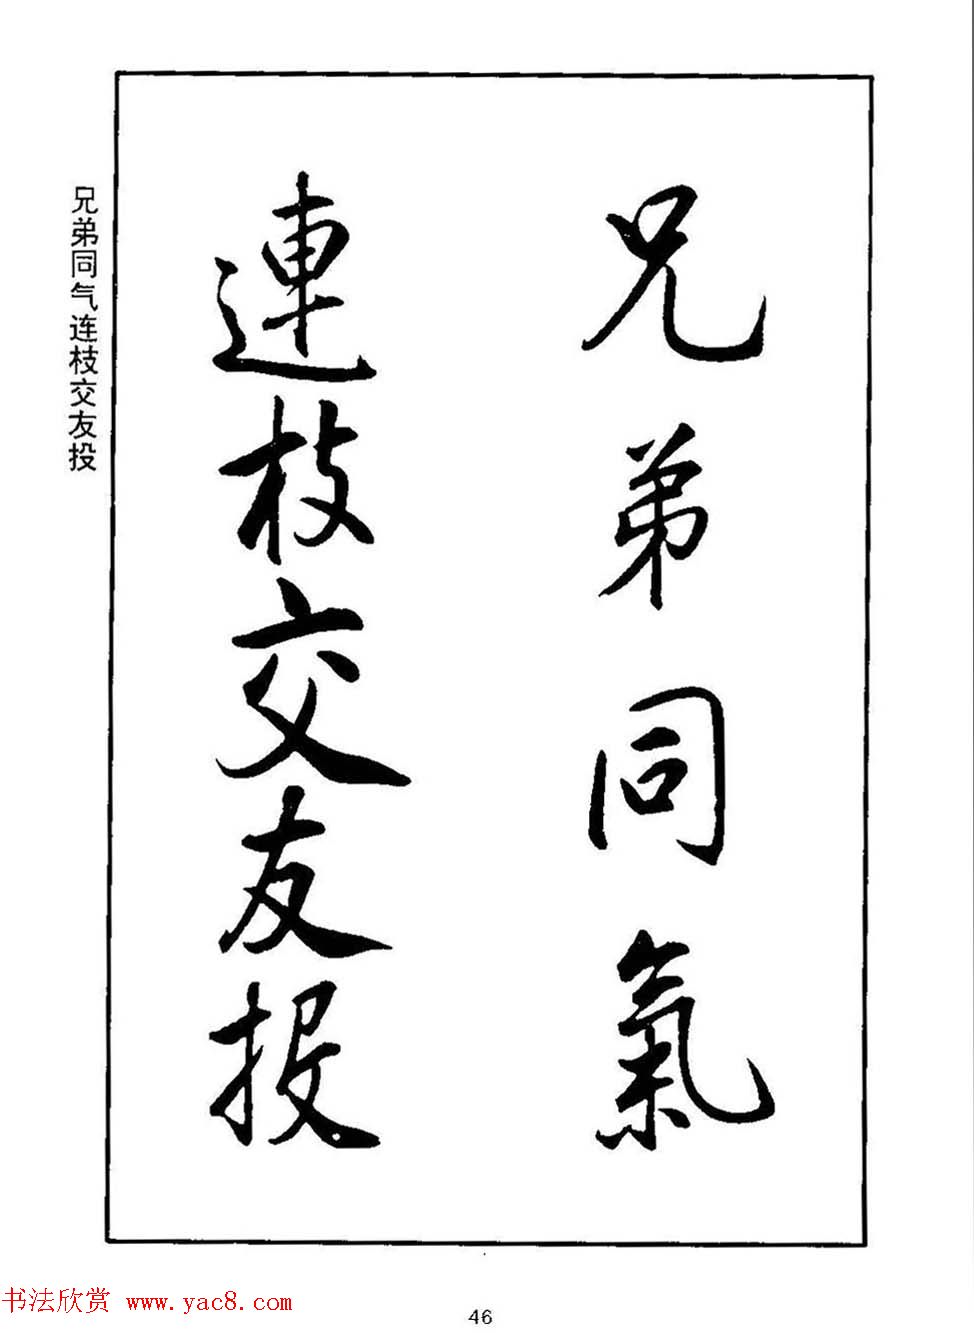 兄弟同氣
連枝交友投
兄弟同气连枝交友投
书法欣赏 www.yac8.com
46